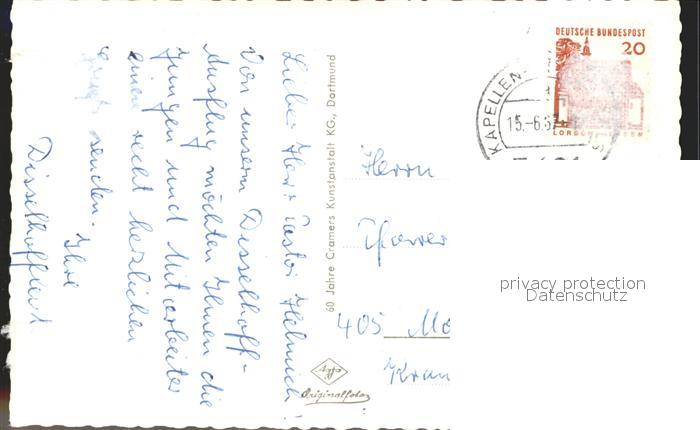 Lieber Herr Pastor Helmich!
Von unserm Disselhoff-
Ausflug möchten Ihnen die
Jungen und Mitarbeiter
einen recht herzlichen
Gruß senden.
Ihre
60 Jahre Cramers Kunstanstalt KG., Dortmund
Agfa
Originalfoto
DEUTSCHE BUNDESPOST
20
KAPELLEN
15.-6.67
Herrn
Pfarrer
405 Mö
Kran
privacy protection
Datenschutz